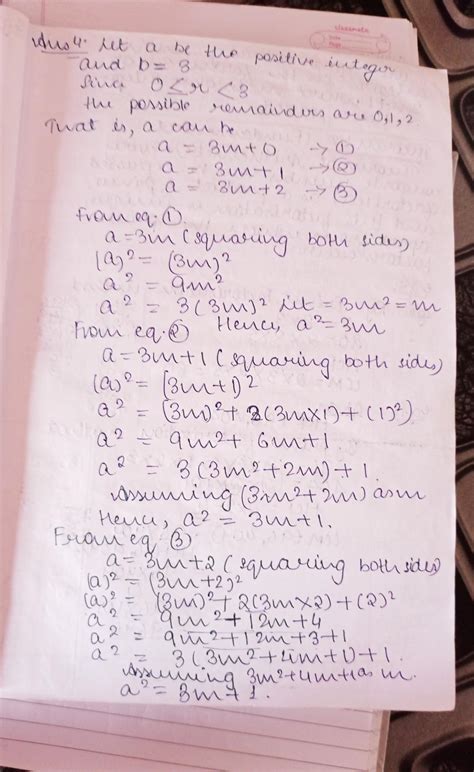 classmate
Date
Page
Ans 4. Let a be the positive integer
and b = 3
Since 0 < r < 3
the possible remainders are 0,1,2
That is, a can be
a = 3m+0 → ①
a = 3m+1 → ②
a = 3m+2 → ③
From eq ①.
a=3m (squaring both sides)
(a)² = (3m)²
a² = 9m²
a² = 3(3m)² Let = 3m² = m
From eq. ② Hence, a² = 3m
a=3m+1 (squaring both sides)
(a)² = (3m+1)²
a² = (3m)² + 2(3m×1) + (1)²)
a² = 9m² + 6m+1
a² = 3(3m²+2m)+1.
Assuming (3m²+2m) as m
Hence, a² = 3m+1.
From eq. ③
a=3m+2 (squaring both sides)
(a)² = (3m+2)²
(a)² = (3m)²+2(3m×2)+(2)²
a² = 9m²+12m+4
a² = 9m²+12m+3+1
a² = 3(3m²+4m+1)+1.
Assuming 3m²+4m+1 as m.
a² = 3m+1.